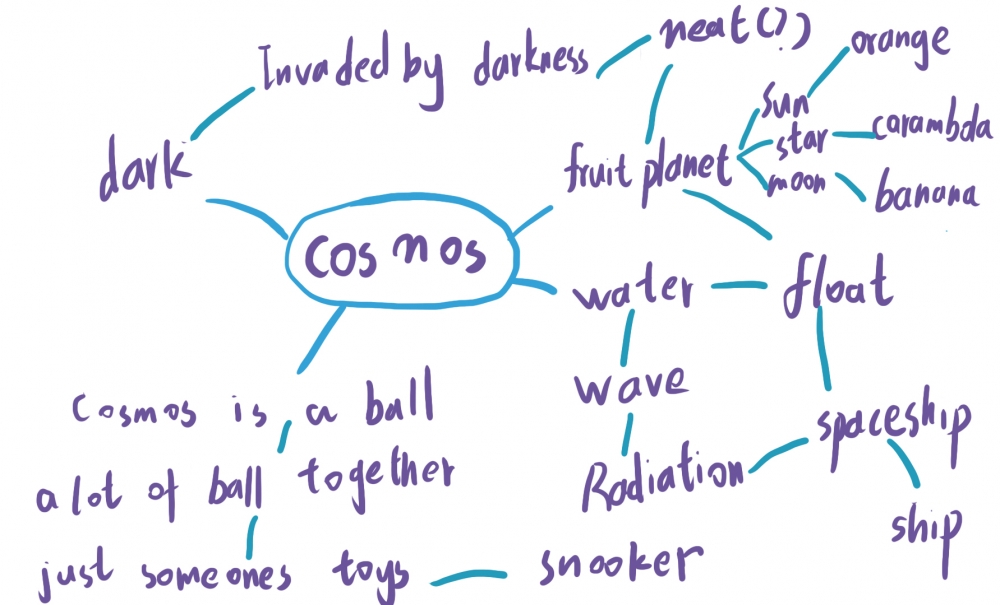 Invaded by darkness
neat(?)
orange
sun
star
carambda
dark
fruit planet
moon
banana
cosmos
water
float
wave
Cosmos is a ball
spaceship
a lot of ball together
Radiation
ship
just someones toys
snooker